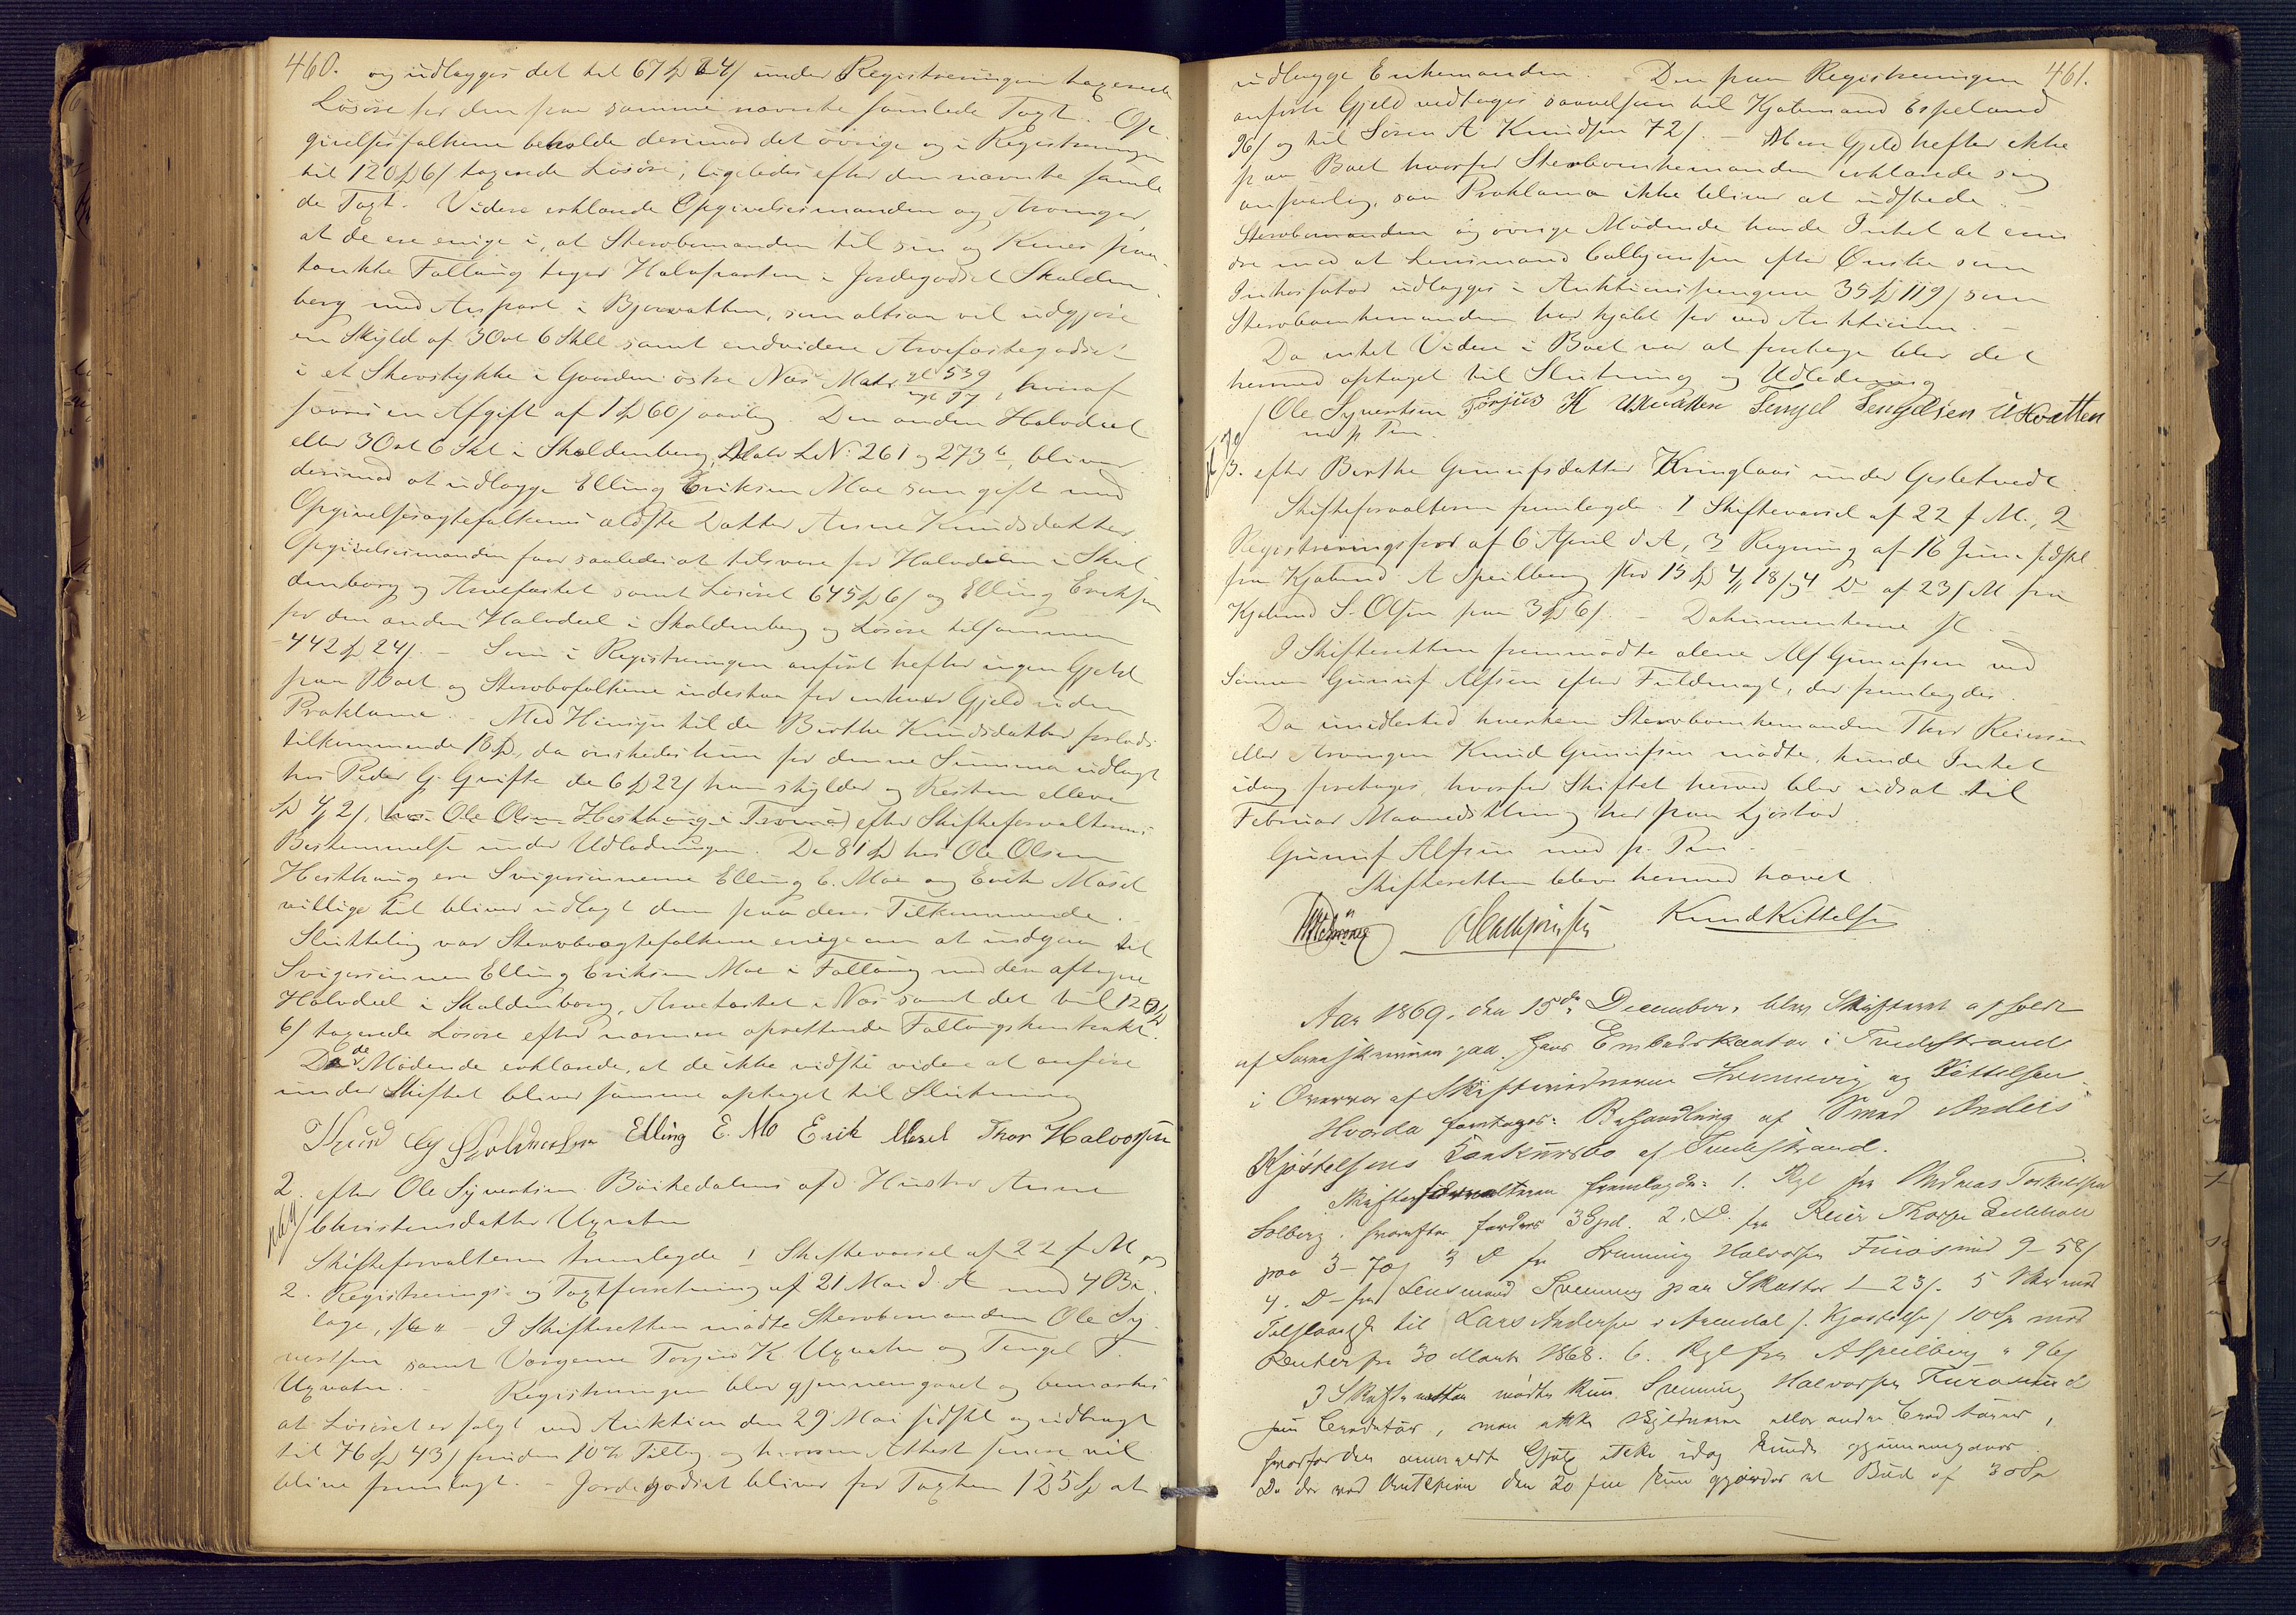 460.
og udlægges det til 67 Sp 24 s under Registreringen taxerede
Løsøre for den paa samme nævnte samlede Taxt. Op-
givelsesfolkene beholde derimod det øvrige og i Registreringen
til 120 Sp 6 s taxerede Løsøre, ligeledes efter den nævnte samle
de Taxt. Videre erklærede Opgivelsesmanden og Arvinger,
at de ere enige i, at Stervbomanden til sin og Kones paa-
tænkte Follaug tager Halvparten i Jordegodset Skolden-
berg med Anpart i Bjorvatten, som altsaa vil udgjøre
en Skyld af 3 Ort 6 Skll samt endvidere Arvefæstegodset
i et Skovstykke i Gaarden østre Næs Matr gl 539 , hvoraf
svares en Afgift af 1 Sp 60 s aarlig. Den anden Halvdeel
eller 3 Ort 6 Skl i Skoldenberg, Matr L No: 261 og 273 b, bliver
derimod at udlægge Elling Eriksen Moe som gift med
Opgivelsesægtefolkenes ældste Datter Anne Knudsdatter
Opgivelsesmanden faar saaledes at tilsvare for Halvdelen i Skol
denberg og Arvefæstet samt Løsøret 645 Sp 6 s og Elling Eriksen
for den anden Halvdeel i Skoldenberg og Løsøre tilsammen
442 Sp 24 s. — Som i Registreringen anført hefter ingen Gjeld
paa Boet og Stervbofolkene indestaa for enhver Gjeld uden
Proklama. Med Hensyn til de Birthe Knudsdatter forlods
tilkommende 18 Sp, da ønskedes hun for denne Summa udlagt
hos Peder G. Grifte de 6 Sp 22 s han skylder og Resten elleve
Sp 4 2 s, hos Ole Olsen Hesthaug i Tromø efter Skifteforvalterens
Bestemmelse under Udlodningen. De 81 Sp hos Ole Olsen
Hesthaug ere Svigersønnerne Elling E. Moe og Erik Mosel
villige til bliver udlagt dem paa deres Tilkommende.
Sluttelig var Stervboægtefolkene enige om at indgaa til
Svigersønnen Elling Eriksen Moe i Follaug med den aftagne
Halvdeel i Skoldenberg, Arvefæstet i Næs samt det til 120 Sp
6 s taxerede Løsøre efter nærmere oprettende Follaugskontrakt.
Da de Mødende erklærede, at de ikke vidste videre at anføre
under Skiftet bliver samme optaget til Slutning
Elling E. Mo Erik Mosel Thor Halvorsen
2. efter Ole Syvertsen Bøikedalens afd Hustro Anne
Christensdatter Uxvatn
Skifteforvalteren fremlagde 1 Skiftevarsel af 22 f M og
2. Registrerings- og Taxtforretning af 21 Mai d. A med 4 Bi-
lage, I Skifteretten mødte Stervbomanden Ole Sy-
vertsen samt Værgerne Torjus K. Uxvatn og Tengel T.
Uxvatn. — Registreringen blev gjennemgaaet og bemærkes
at Løsøret er solgt ved Auktion den 29 Mai sidstl og udbragt
til 76 Sp 43 s foruden 10 % Tillæg og hvorom Attest senere vil
blive fremlagt. — Jordegodset bliver for Taxten 125 Sp at
461.
udlægge Enkemanden. Den paa Registreringen
anførte Gjeld vedtoges saavelsom til Kjøbmand Espeland
96 s og til Søren A. Knudsen 72 s. — Mere Gjeld hefter ikke
paa Boet hvorfor Stervboenkemanden erklærede sig
ansvarlig, saa Proklama ikke bliver at udstede.
Stervbomanden og øvrige Mødende havde Intet at erin
dre mod at Lensmand Callgjønsen efter Ønske som
Inkasator udlægges i Auktionspengene 35 Sp 119 s som
Stervboenkemanden har kjøbt for ved Auktionen. —
Da intet Videre i Boet var at foretage blev det
hermed optaget til Slutning og Udlodning
Ole Syvertsen Torjus K Uxvatten Tengel Tengelsen Uxvatten
m p Pen.
3. efter Birthe Gunufsdatter Kringlaas under Gjeletvedt.
Skifteforvalteren fremlagde 1 Skiftevarsel af 22 f M., 2
Registreringsforr af 6 April d A, 3 Regning af 16 Juni sidstl.
fra Kjøbmd A Speilberg stor 15 Sp 4 18 s, 4 Do af 23 s M fra
Kjøbmd S. Olsen paa 3 Sp 6 s. — Dokumenterne
I Skifteretten fremmødte alene Alf Gunufsen ved
Sønnen Gunuf Alfsen efter Fuldmagt, der fremlagdes.
Da imidlertid hverken Stervboenkemanden Thor Reiersen
eller Arvingen Knud Gunufsen mødte, kunde Intet
idag foretages, hvorfor Skiftet herved blev udsat til
Februar Maanedsthing her paa Ljøstad.
Gunuf Alfsen med p. Pen. —
Skifteretten blev hermed hævet.
Knud Kittelsen
Aar 1869, den 15de December, blev Skifteret afholdt
af Sorenskriveren paa hans Embedskontor i Tvedestrand
i Overvær af Skiftevidnerne Svenning og Kittelsen
Hvorda foretoges: Behandling af Smed Anders
Kjøstelsens Konkursbo af Tvedestrand.
Skifteforvalteren fremlagde: 1. Rgl fra Andreas Torkildsen
Solberg, hvorefter fordres 3 Spd. 2. Do fra Reier Thorsen Eckholt
paa 3 – 70 s 3 Do fra Svenning Halvorsen Furøsund 9 – 58 s
4. Do fra Lensmand Svenning paa Skatter 1 – 23 s. 5
til Lars Andersen i Arendal f. Kjøstelsen 10 Sp med
Renter fra 30 Marts 1868. 6. Rgl fra A Speilberg " 96 s
I Skifteretten mødte kun Svenning Halvorsen Furøsund
som Creditor, men ikke Skyldneren eller andre Creditorer,
hvorfor den anmeldte Gjeld ikke idag kunde gjennemgaaes.
Da der ved Auktion den 20 kun gjordes et Bud af 30 Sp